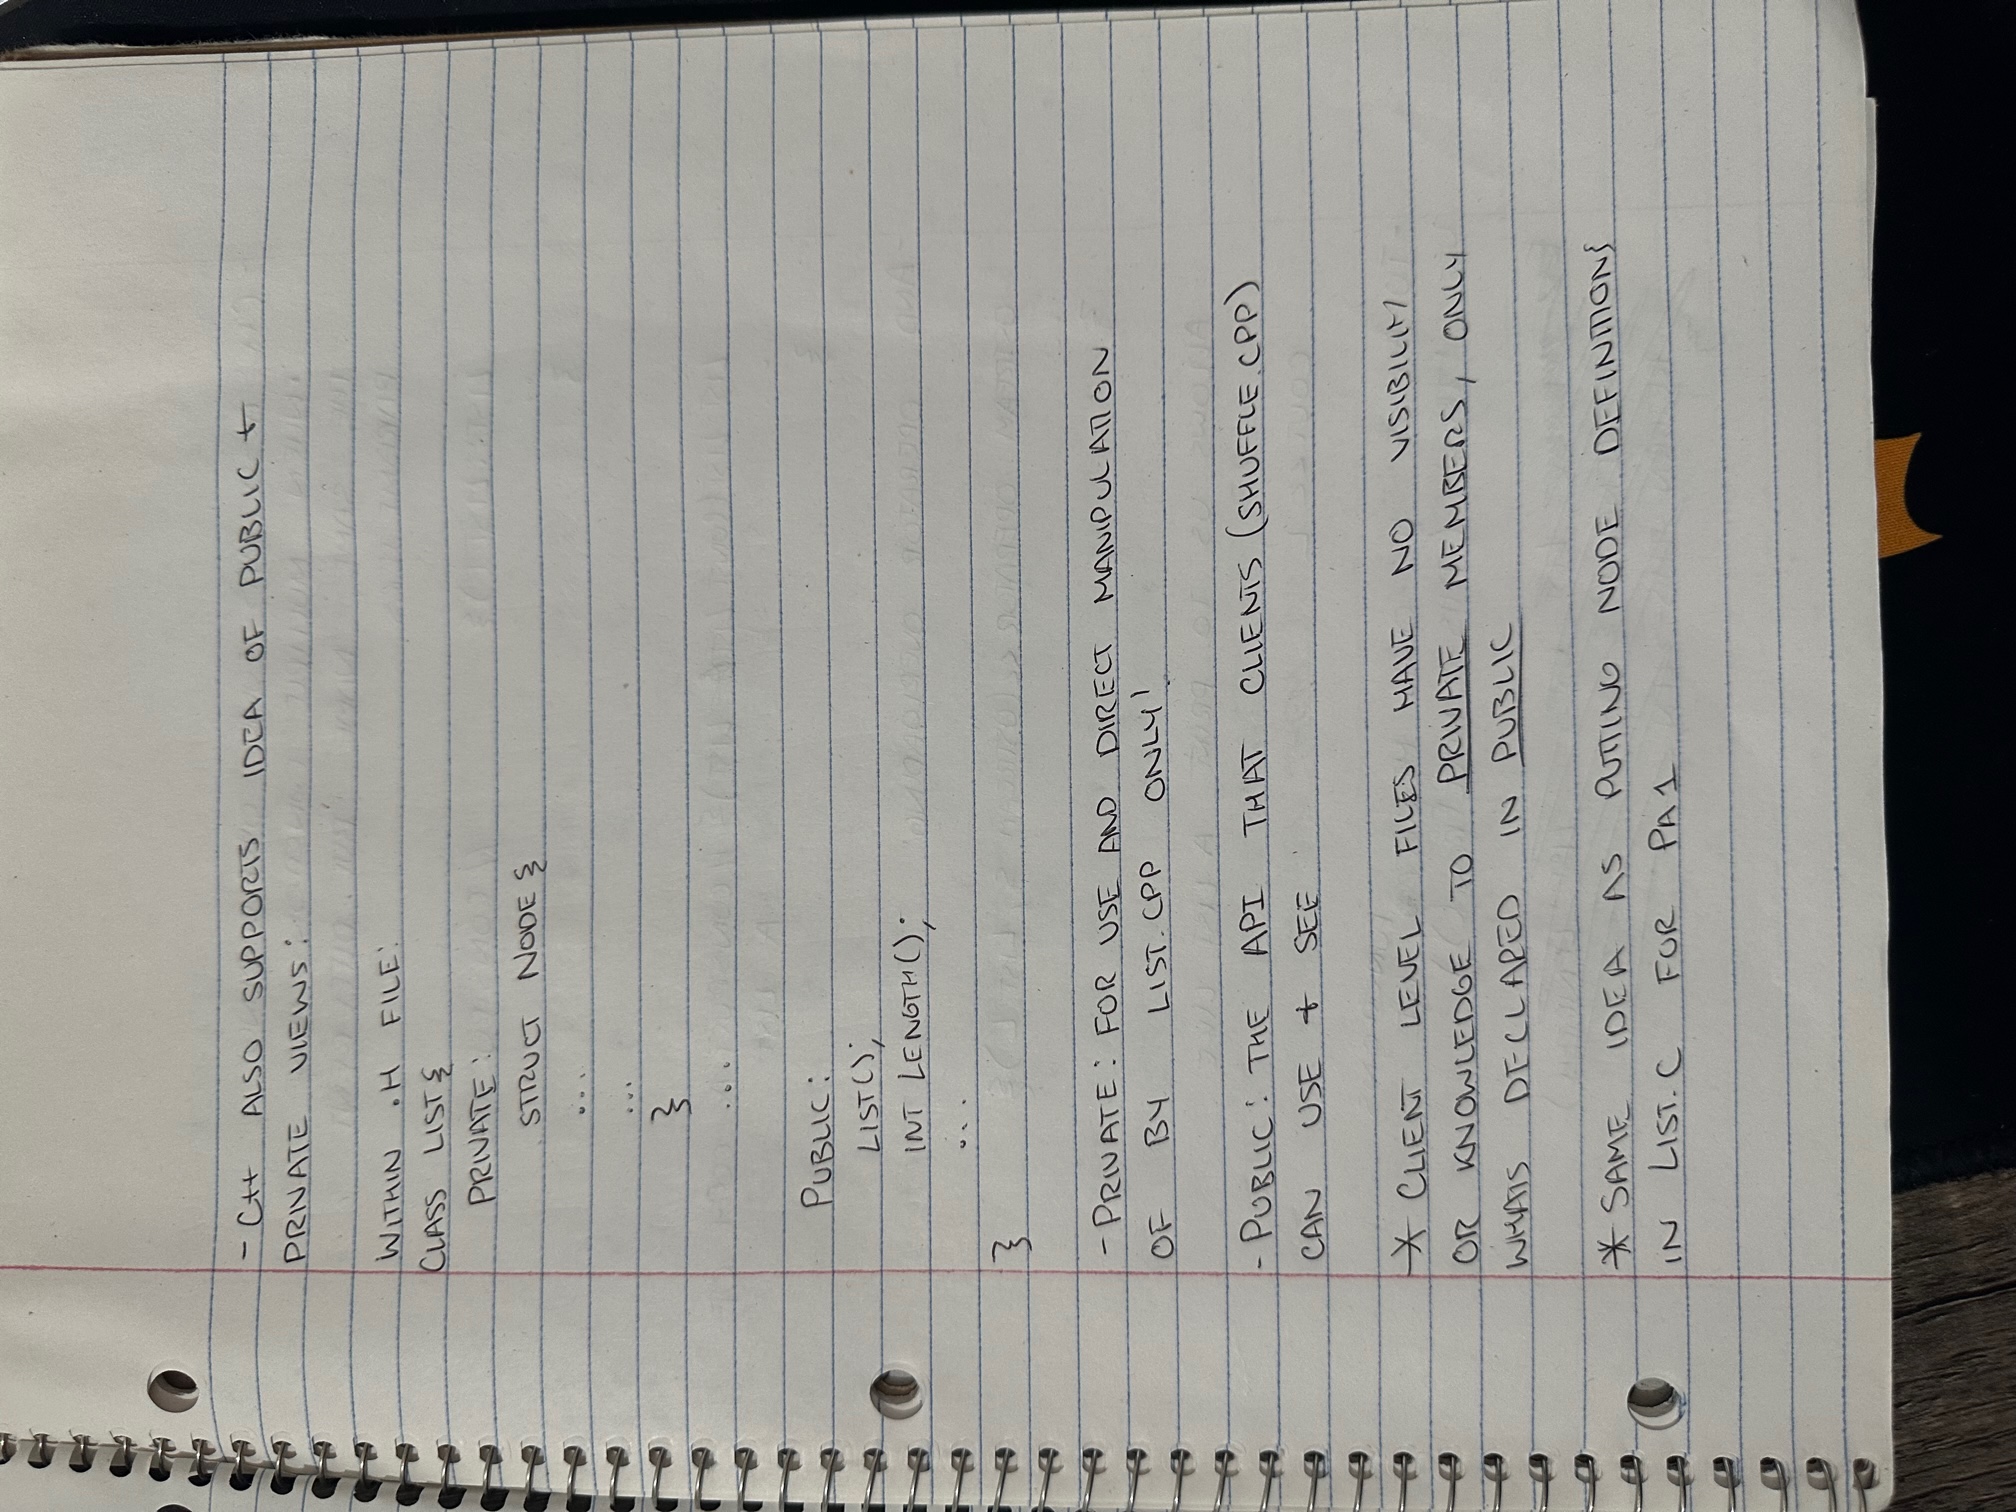 - C++ ALSO SUPPORTS IDEA OF PUBLIC +
PRIVATE VIEWS:
WITHIN .H FILE:
CLASS LIST {
PRIVATE:
STRUCT NODE {
...
...
}
...
PUBLIC:
LIST();
INT LENGTH();
...
}
- PRIVATE: FOR USE AND DIRECT MANIPULATION
OF BY LIST.CPP ONLY!
- PUBLIC: THE API THAT CLIENTS (SHUFFLE.CPP)
CAN USE + SEE
* CLIENT LEVEL FILES HAVE NO VISIBILITY
OR KNOWLEDGE TO PRIVATE MEMBERS, ONLY
WHATS DECLARED IN PUBLIC
* SAME IDEA AS PUTTING NODE DEFINITIONS
IN LIST.C FOR PA1